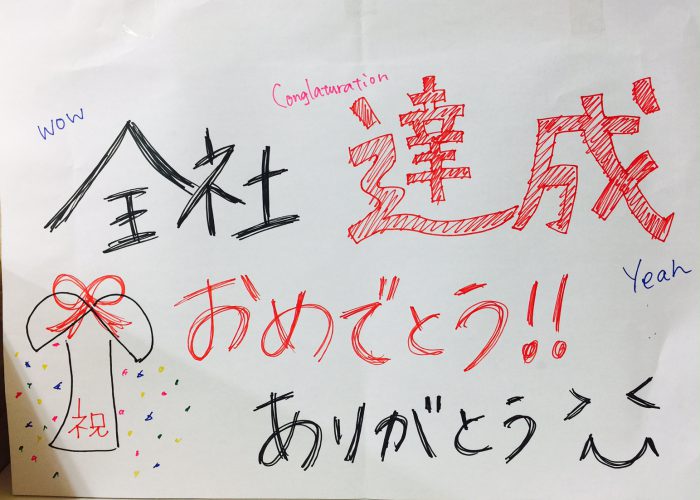 Conglaturation
wow
全社 達成
Yeah
おめでとう!!
祝
ありがとう